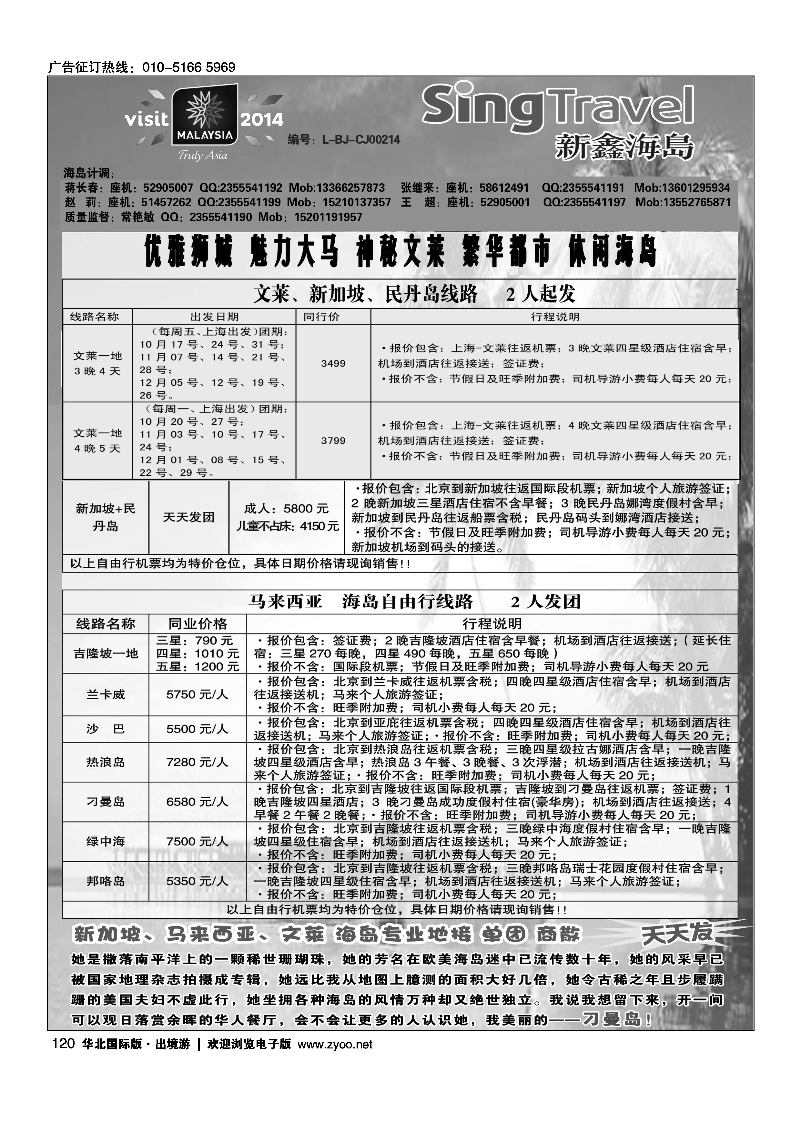 广告征订热线：010-5166 5969
visit MALAYSIA 2014
Truly Asia
编号：L-BJ-CJ00214
SingTravel
新鑫海岛
海岛计调：
蒋长春：座机：52905007 QQ:2355541192 Mob:13366257873 张继来：座机：58612491 QQ:2355541191 Mob:13601295934
赵 莉：座机：51457262 QQ:2355541199 Mob：15210137357 王 超：座机：52905001 QQ:2355541197 Mob:13552765871
质量监督：常艳敏 QQ：2355541190 Mob：15201191957
优雅狮城 魅力大马 神秘文莱 繁华都市 休闲海岛
文莱、新加坡、民丹岛线路 2人起发
线路名称 出发日期 同行价 行程说明
文莱一地
3晚4天
（每周五、上海出发）团期：
10月17号、24号、31号；
11月07号、14号、21号、
28号；
12月05号、12号、19号、
26号。
3499
·报价包含：上海-文莱往返机票；3晚文莱四星级酒店住宿含早；
机场到酒店往返接送；签证费；
·报价不含：节假日及旺季附加费；司机导游小费每人每天20元；
文莱一地
4晚5天
（每周一、上海出发）团期：
10月20号、27号；
11月03号、10号、17号、
24号；
12月01号、08号、15号、
22号、29号。
3799
·报价包含：上海-文莱往返机票；4晚文莱四星级酒店住宿含早；
机场到酒店往返接送；签证费；
·报价不含：节假日及旺季附加费；司机导游小费每人每天20元；
新加坡+民
丹岛
天天发团
成人：5800元
儿童不占床：4150元
·报价包含：北京到新加坡往返国际段机票；新加坡个人旅游签证；
2晚新加坡三星酒店住宿不含早餐；3晚民丹岛娜湾度假村含早；
新加坡到民丹岛往返船票含税；民丹岛码头到娜湾酒店接送；
·报价不含：节假日及旺季附加费；司机导游小费每人每天20元；
新加坡机场到码头的接送。
以上自由行机票均为特价仓位，具体日期价格请现询销售!!
马来西亚 海岛自由行线路 2人发团
线路名称 同业价格 行程说明
吉隆坡一地
三星：790元
四星：1010元
五星：1200元
·报价包含：签证费；2晚吉隆坡酒店住宿含早餐；机场到酒店往返接送；（延长住
宿：三星270每晚，四星490每晚，五星650每晚）
·报价不含：国际段机票；节假日及旺季附加费；司机导游小费每人每天20元
兰卡威 5750元/人
·报价包含：北京到兰卡威往返机票含税；四晚四星级酒店住宿含早；机场到酒店
往返接送机；马来个人旅游签证；
·报价不含：旺季附加费；司机小费每人每天20元；
沙 巴 5500元/人
·报价包含：北京到亚庇往返机票含税；四晚四星级酒店住宿含早；机场到酒店往
返接送机；马来个人旅游签证；·报价不含：旺季附加费；司机小费每人每天20元；
热浪岛 7280元/人
·报价包含：北京到热浪岛往返机票含税；三晚四星级拉古娜酒店含早；一晚吉隆
坡四星级酒店含早；热浪岛3午餐、3晚餐、3次浮潜；机场到酒店往返接送机；马
来个人旅游签证；·报价不含：旺季附加费；司机小费每人每天20元；
刁曼岛 6580元/人
·报价包含：北京到吉隆坡往返国际段机票；吉隆坡到刁曼岛往返机票；签证费；1
晚吉隆坡四星酒店；3 晚刁曼岛成功度假村住宿(豪华房)；机场到酒店往返接送；4
早餐2午餐2晚餐；·报价不含：旺季附加费；司机导游小费每人每天20元；
绿中海 7500元/人
·报价包含：北京到吉隆坡往返机票含税；三晚绿中海度假村住宿含早；一晚吉隆
坡四星级住宿含早；机场到酒店往返接送机；马来个人旅游签证；
·报价不含：旺季附加费；司机小费每人每天20元；
邦咯岛 5350元/人
·报价包含：北京到吉隆坡往返机票含税；三晚邦咯岛瑞士花园度假村住宿含早；
一晚吉隆坡四星级住宿含早；机场到酒店往返接送机；马来个人旅游签证；
·报价不含：旺季附加费；司机小费每人每天20元；
以上自由行机票均为特价仓位，具体日期价格请现询销售!!
新加坡、马来西亚、文莱 海岛专业地接 单团 商散 天天发
她是撒落南平洋上的一颗稀世珊瑚珠，她的芳名在欧美海岛迷中已流传数十年，她的风采早已
被国家地理杂志拍摄成专辑，她远比我从地图上臆测的面积大好几倍，她令古稀之年且步履蹒
跚的美国夫妇不虚此行，她坐拥各种海岛的风情万种却又绝世独立。我说我想留下来，开一间
可以观日落赏余晖的华人餐厅，会不会让更多的人认识她，我美丽的——刁曼岛！
120 华北国际版·出境游 | 欢迎浏览电子版 www.zyoo.net